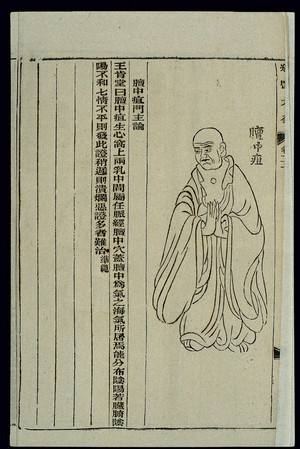 膻中疽
膻中疽門主論
王肯堂曰膻中疽生心窩上兩乳中間屬任脈經膻中穴蓋膻中為氣之海氣所居焉能分布陰陽若臟腑陰
陽不和七情不平則發此證稍遲則潰爛惡證多者難治準繩